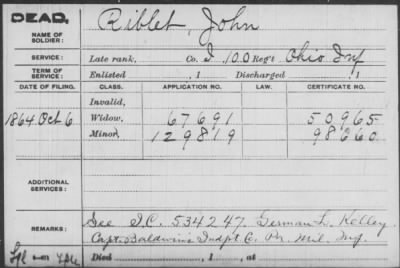 DEAD.
NAME OF SOLDIER: Riblet, John
SERVICE: Late rank, Co. I, 100 Reg't Ohio Inf
TERM OF SERVICE: Enlisted , 1 Discharged , 1
DATE OF FILING. CLASS. APPLICATION NO. LAW. CERTIFICATE NO.
Invalid,
1864 Oct 6 Widow, 67691 50965
Minor, 129819 98660
ADDITIONAL SERVICES:
REMARKS: See I.C. 534247, German L. Kelley
Capt. Baldwins Indpt C. Pa. Mil. Inf.
Died , 1 , at